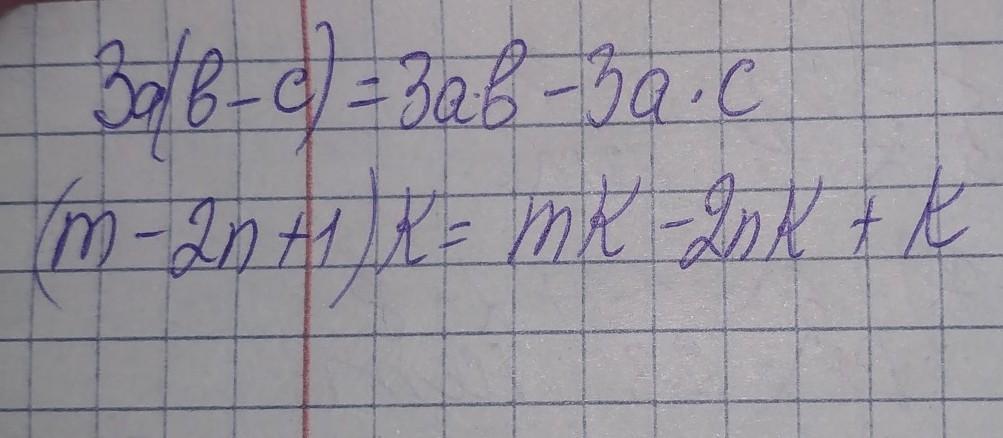 3a(b-c)=3a·b-3a·c
(m-2n+1)k=mk-2nk+k